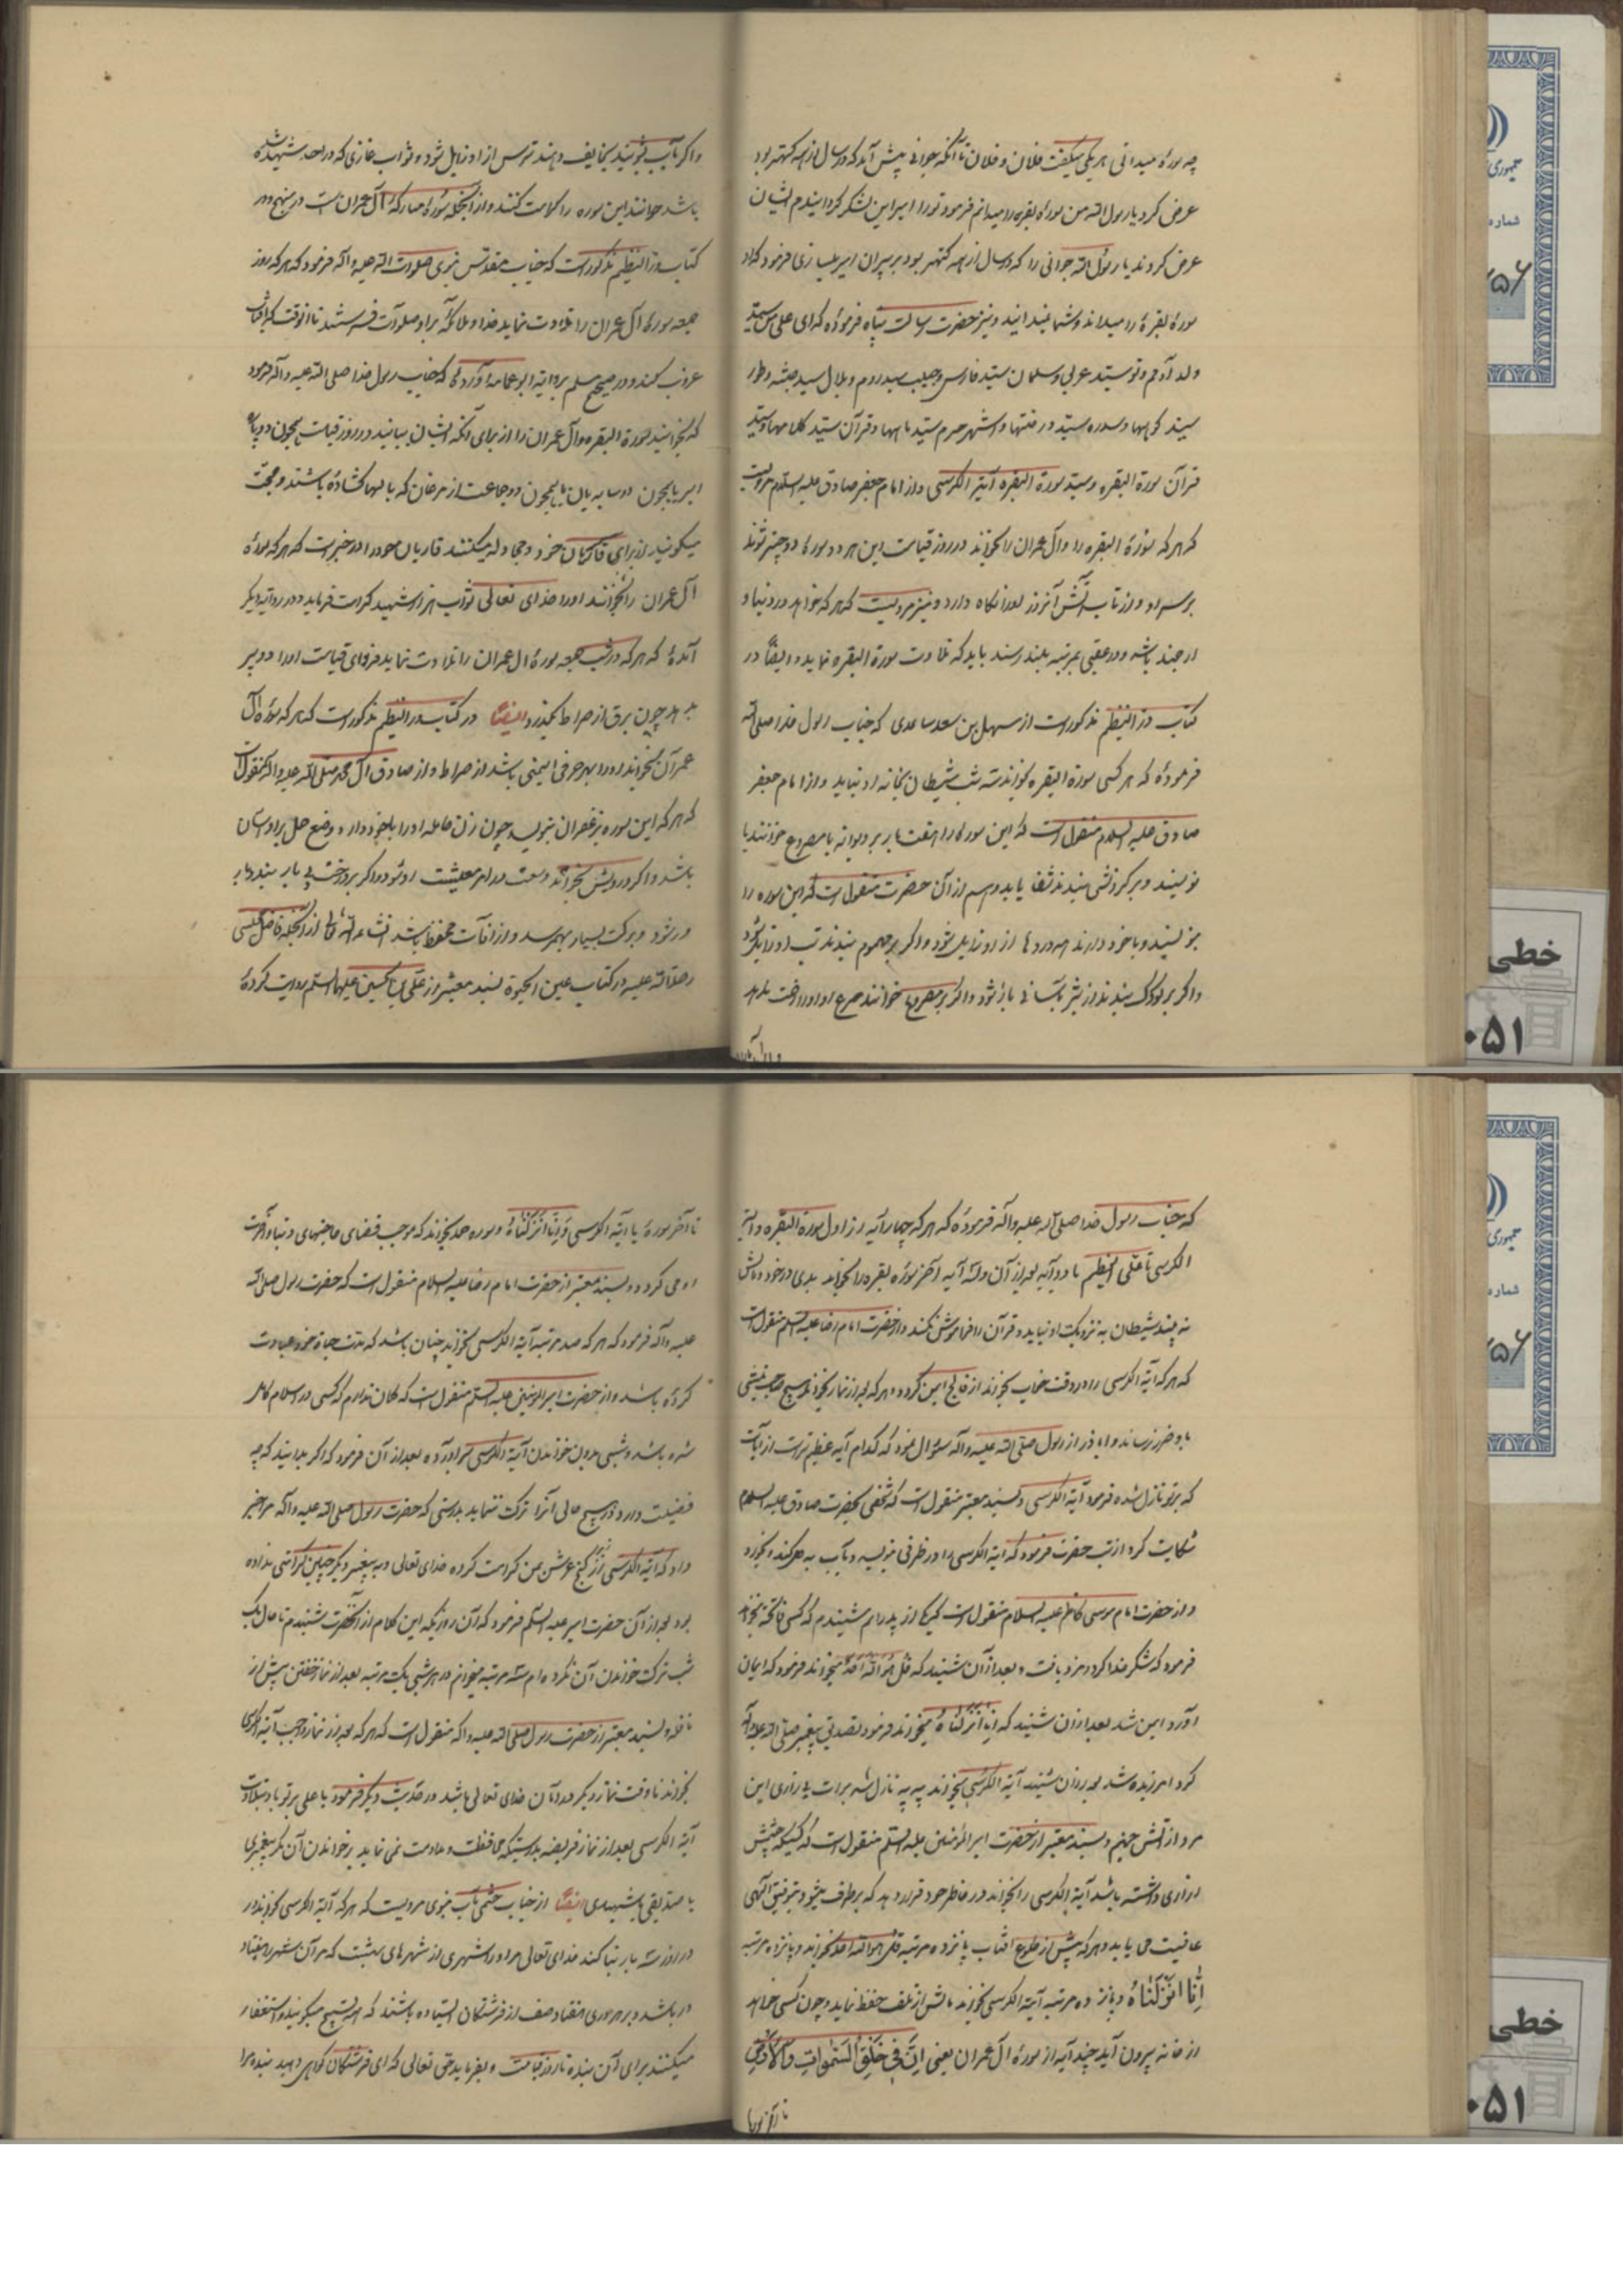 چه سوره میدانی هر یکی میگفت فلان و فلان تا آنکه جوانی پیش آمد که در سال از همه کهتر بود
عرض کرد یا رسول الله من سوراه بقره را میدانم فرمود تو را امیر این لشکر گردانیدم ایشان
عرض کردند یا رسول الله جوانی را که در سال از همه کهتر بود بر پیران امیر میسازی فرمود که او
سورهٔ بقره را میداند و شما نمیدانید و نیز حضرت رسالت پناه فرموده که ای علی من سید
ولد آدمم و تو سید عربی و سلمان سید فارس و صهیب سید روم و بلال سید حبشه و طور
سید کوهها و سدره سید درختها و اشهر حرم سید ماهها و قرآن سید کلامها و سید
قرآن سورة البقره و سید سورة البقره آیة الکرسی و از امام جعفر صادق علیه السلام مرویست
که هر که سورهٔ البقره را و آل عمران را بخواند در روز قیامت این هر دو سوره دو چتر شوند
بر سر او و از تاب آتش آنروز او را نگاه دارد و نیز مرویست که هر که خواهد در دنیا و
ارجمند باشد و در عقبی بمرتبه بلند رسند باید که تلاوت سورة البقره نماید و ایضاً در
کتاب در النظیم مذکور است از سهل بن سعد ساعدی که جناب رسول خدا صلی الله
فرموده که هر کسی سورة البقره بخواند سه شب شیطان بخانه او نیاید و از امام جعفر
صادق علیه السلام منقول است که این سوره را هفت بار بر دیوانه یا مصروع خوانند یا
نویسند و بر گردنش بندند شفا یابد و هم از آن حضرت منقول است که این سوره را
بنویسند و با خود دارند همه دردها از او زایل شود و اگر بر محموم بندند تب او زایل شود
و اگر بر کودک بندند از شیر بآسانی باز شود و اگر بر مصروع خوانند صرع او را راحت
و اگر بآب
و اگر بآب شویند بخایف دهند ترس از او زایل شود و ثواب غازی که در احد شهید شده
باشد خوانند این سوره را کرامت کنند و از آنجمله سورهٔ مبارکهٔ آل عمران است در منهج و در
کتاب در النظیم مذکور است که جناب مقدس نبوی صلوات الله علیه و آله فرمود که هر که روز
جمعه سورهٔ آل عمران را تلاوت نماید خدا و ملائکه بر او صلوات فرستند تا آنوقت که آفتاب
غروب کند و در صحیح مسلم بروایة ابو امامه آورده که جناب رسول خدا صلی الله علیه و آله فرمود
که بخوانید سورة البقره و آل عمران را از برای آنکه ایشان بیایند در روز قیامت همچون دو پاره
ابر یا همچون دو سایه بان یا همچون دو جماعت از مرغان که بالها گشاده باشند و حجت
میگویند از برای قاریان خود و مجادله میکنند قاریان خود را در خبر است که هر که سورهٔ
آل عمران را بخواند او را خدای تعالی ثواب هزار شهید کرامت فرماید و در روایة دیگر
آمده که هر که در شب جمعه سورهٔ آل عمران را تلاوت نماید فردای قیامت او را دو پر
بدهد چون برق از صراط بگذرد ایضاً در کتاب در النظیم مذکور است که هر که سورهٔ آل
عمران بخواند او را بهر حرفی ایمنی باشد از صراط و از صادق آل محمد صلی الله علیه و آله منقول است
که هر که این سوره بزعفران بنویسد چون زن حامله او را با خود دارد وضع حمل بر او آسان
باشد و اگر درویش بخواند وسعت در امر معیشت او شود و اگر بر درخت بی بار بندد بار
ور شود و برکت بسیار بهم رسد و از آفات محفوظ باشد انشاءالله تعالی از آنجمله فاضل مجلسی
رحمة الله علیه در کتاب عین الحیوة بسند معتبر از علی بن الحسین علیهما السلم روایت کرده
که جناب رسول خدا صلی الله علیه و آله فرموده که هر که چهار آیه از اول سورة البقره و آیة
الکرسی تا علی العظیم با دو آیه بعد از آن و سه آیه آخر سورهٔ بقره را بخواند بدی در خود و مالش
نه بیند شیطان به نزدیک او نیاید و قرآن را فراموش نکند و از حضرت امام رضا علیه السلم منقول است
که هر که آیة الکرسی را در وقت خواب بخواند از فالج ایمن گردد و هر که بعد از نماز بخواند هیچ صاحب نیشی
باو ضرر نرساند و اباذر از رسول صلی الله علیه و آله سؤال نمود که کدام آیه عظیم تر است از آیات
که بر تو نازل شده فرمود آیة الکرسی و بسند معتبر منقول است که شخصی بحضرت صادق علیه السلام
شکایت کرد از تب حضرت فرمود که آیة الکرسی را در ظرفی بنویسد و بآب به حل کند و بخورد
و از حضرت امام موسی کاظم علیه السلام منقول است که یکی از پدرانم شنیدم که کسی فاتحه بخواند
فرمود که شکر خدا کرد و مزد یافت و بعد از آن شنید که قل هو الله احد میخواند فرمود که ایمان
آورد ایمن شد بعد از آن شنید که انا انزلناهٔ میخواند فرمود تصدیق پیغمبر صلی الله علیه و آله
کرد آمرزیده شد بعد از آن شنید آیة الکرسی میخواند به به نازل شد برات بیزاری این
مرد از آتش جهنم و بسند معتبر از حضرت امیر المؤمنین علیه السلم منقول است که کسیکه چشمش
آزاری داشته باشد آیة الکرسی را بخواند و در خاطر خود قرار دهد که برطرف میشود و بتوفیق الهی
عافیت می یابد و هر که پیش از طلوع آفتاب پانزده مرتبه قل هو الله احد بخواند و پانزده مرتبه
إنا انزلناه و پانزده مرتبه آیة الکرسی بخواند مالش از تلف حفظ نماید و چون کسی خواهد
از خانه بیرون آید چند آیه از سورهٔ آل عمران یعنی ان فی خلق السموات والارض
تا آخر سوره
تا آخر سوره یا آیة الکرسی و انا انزلناهٔ و سوره حمد بخواند که موجب قضای حاجتهای دنیا و آخرت
او می گردد و بسند معتبر از حضرت امام رضا علیه السلام منقول است که حضرت رسول صلی الله
علیه و آله فرمود که هر که صد مرتبه آیة الکرسی بخواند چنان باشد که مدت حیاة خود عبادت
کرده باشد و از حضرت امیر المؤمنین علیه السلم منقول است که گمان ندارم که کسی در اسلام کامل
شده باشد و شبی بدون خواندن آیة الکرسی بسر آورده بعد از آن فرمود که اگر بدانید که چه
فضیلت دارد در هیچ حالی آنرا ترک ننماید بدرستی که حضرت رسول صلی الله علیه و آله مرا خبر
داد که آیة الکرسی از گنج عرش بمن کرامت کرده خدای تعالی و به پیغمبر دیگر چنین کرامتی نداده
بود بعد از آن حضرت امیر علیه السلم فرمود که آن روزیکه این کلام از آنحضرت شنیدم تا حال یک
شب ترک خواندن آن نکرده ام سه مرتبه میخوانم در هر شبی یک مرتبه بعد از نماز خفتن پیش از
نافله و بسند معتبر از حضرت رسول صلی الله علیه و آله منقول است که هر که بعد از نماز واجب آیة الکرسی
بخواند تا وقت نماز دیگر در امان خدای تعالی باشد و در حدیث دیگر فرمود یا علی بر تو باد بتلاوت
آیة الکرسی بعد از نماز فریضه بدرستیکه محافظت و مداومت نمی نماید بر خواندن آن مگر پیغمبری
یا صدیقی یا شهیدی ایضاً از جناب ختمی مآب نبوی مرویست که هر که آیة الکرسی بخواند در
در روز سه بار بنا کند خدای تعالی مر او را شهری از شهرهای بهشت که هر آن شهر را هفتاد
در باشد و بر هر دری هفتاد صف از فرشتگان ایستاده باشند که همه تسبیح میگویند و استغفار
میکنند برای آن بنده تا روز قیامت و بفرماید حق تعالی که ای فرشتگان گواهی دهید بنده مرا
خطی
۵۱
جمهوری
شماره
۷۵۶
خطی
۵۱
جمهوری
شماره
۷۵۶